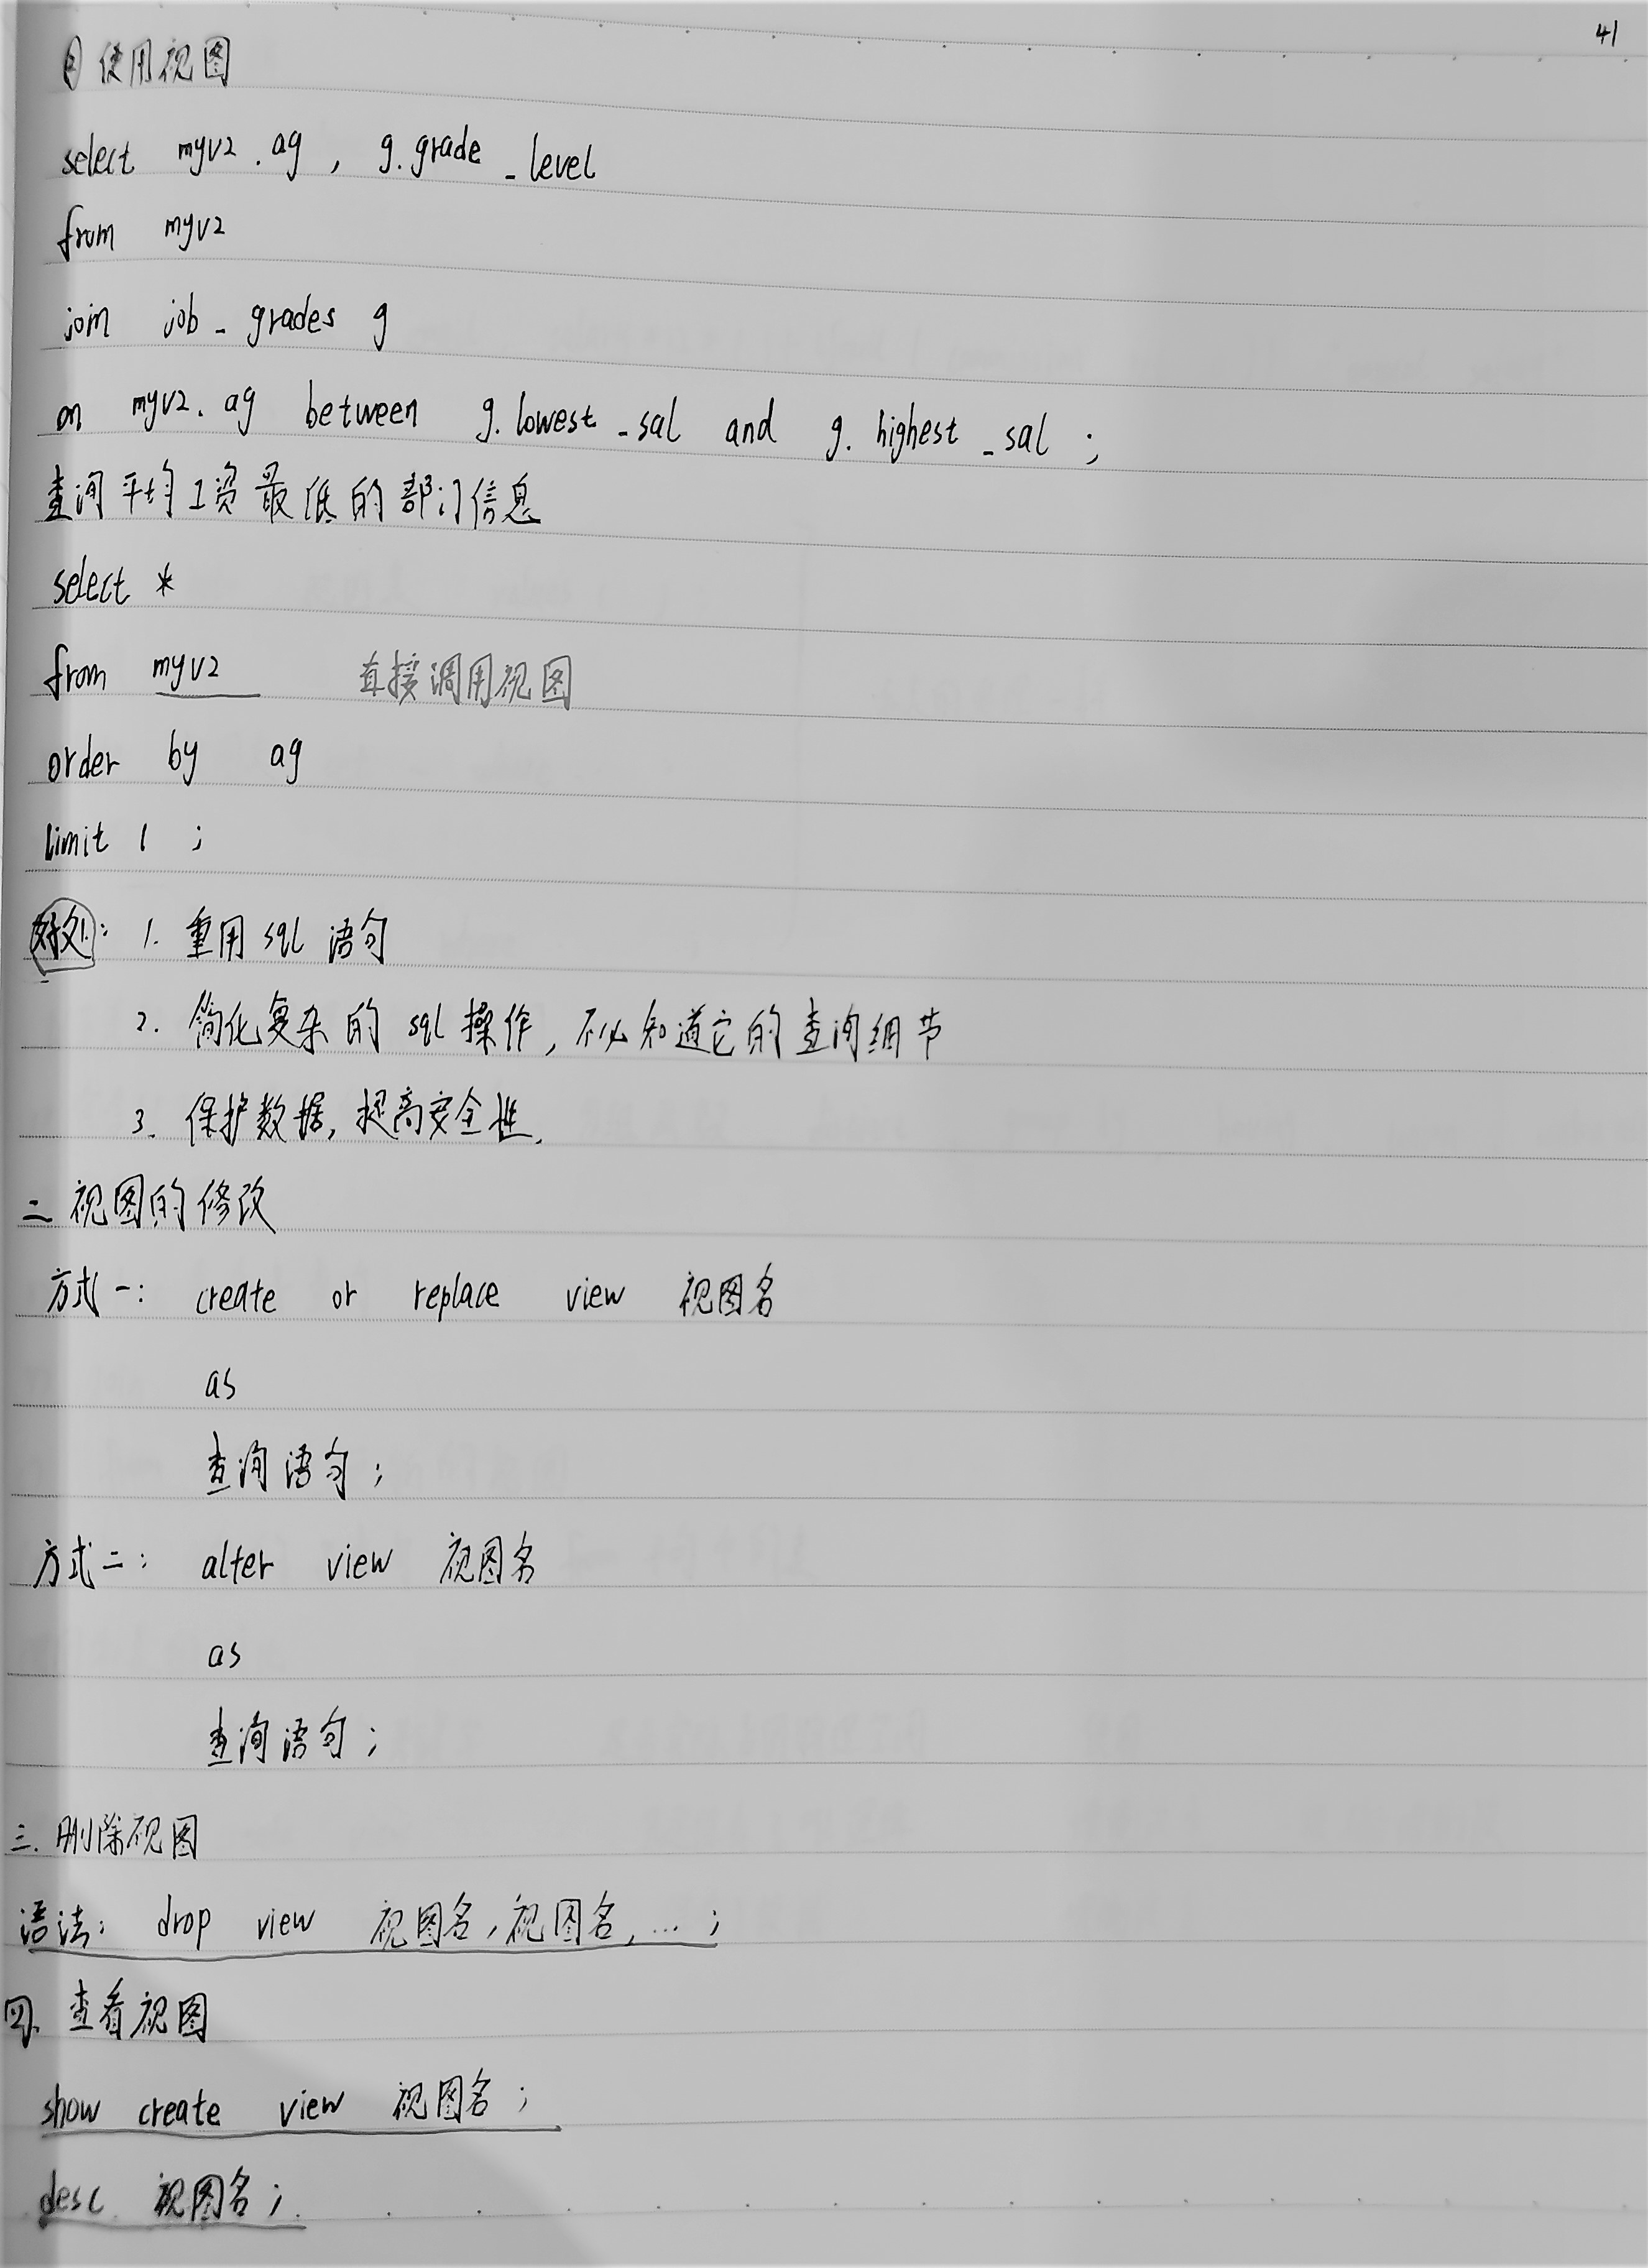 41
② 使用视图
select myv2.ag , g.grade_level
from myv2
join job_grades g
on myv2.ag between g.lowest_sal and g.highest_sal ;
查询平均工资最低的部门信息
select *
from myv2 直接调用视图
order by ag
limit 1 ;
好处: 1. 重用sql 语句
2. 简化复杂的sql操作, 不必知道它的查询细节
3. 保护数据, 提高安全性.
二 视图的修改
方式一: create or replace view 视图名
as
查询语句;
方式二: alter view 视图名
as
查询语句;
三. 删除视图
语法: drop view 视图名, 视图名, ... ;
四. 查看视图
show create view 视图名;
desc 视图名;